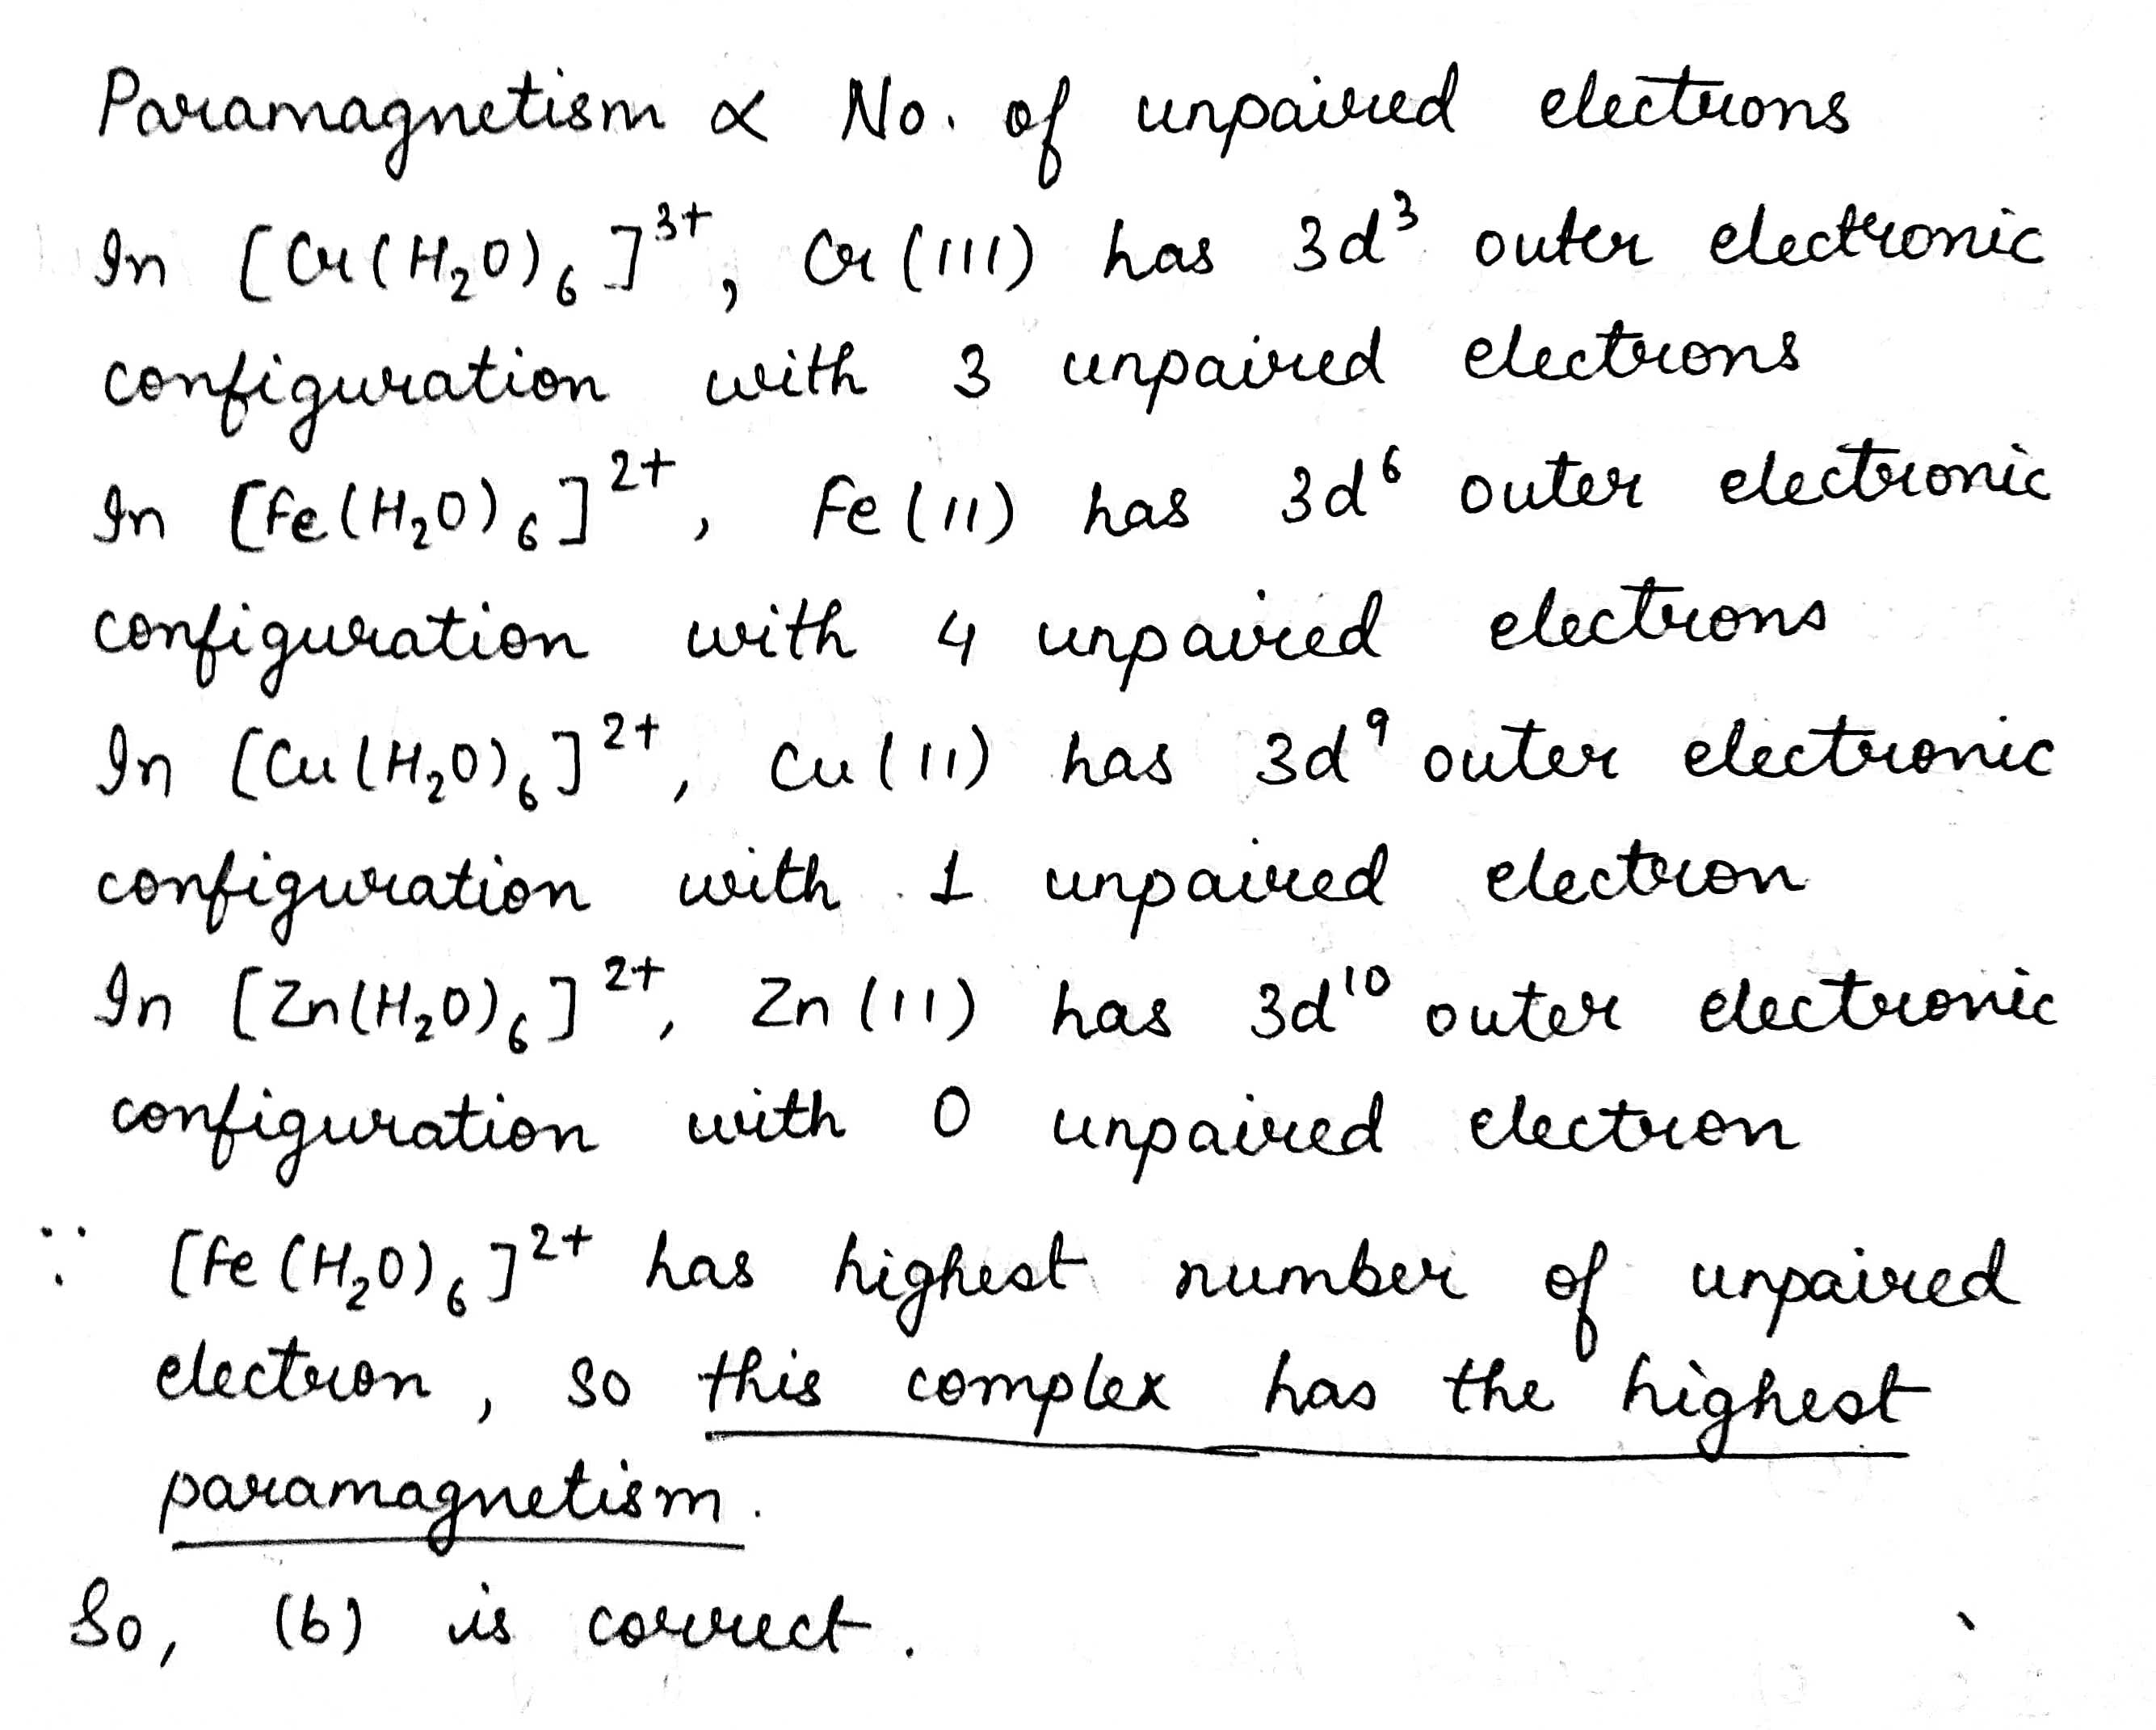 Paramagnetism ∝ No. of unpaired electrons
In [Cr(H₂O)₆]³⁺, Cr(III) has 3d³ outer electronic
configuration with 3 unpaired electrons
In [Fe(H₂O)₆]²⁺, Fe(II) has 3d⁶ outer electronic
configuration with 4 unpaired electrons
In [Cu(H₂O)₆]²⁺, Cu(II) has 3d⁹ outer electronic
configuration with 1 unpaired electron
In [Zn(H₂O)₆]²⁺, Zn(II) has 3d¹⁰ outer electronic
configuration with 0 unpaired electron
∵ [Fe(H₂O)₆]²⁺ has highest number of unpaired
electron, so this complex has the highest
paramagnetism.
So, (b) is correct.